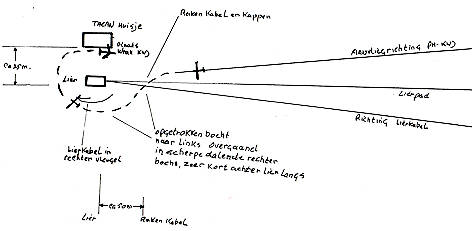 TACAN Huisje
Raken Kabel en Kappen
plaats
wrak KW)
Aanvliegrichting PH-KW)
ca 25m.
Lier
Lierpad
Richting Lierkabel
opgetrokken bocht
naar links overgaand
in scherpe dalende rechter
bocht, zeer kort achter lier langs
Lierkabel in
rechter vleugel
ca 50m
Lier
Raken Kabel